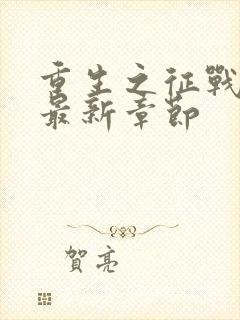 重生之征戰
最新章節
賀亮